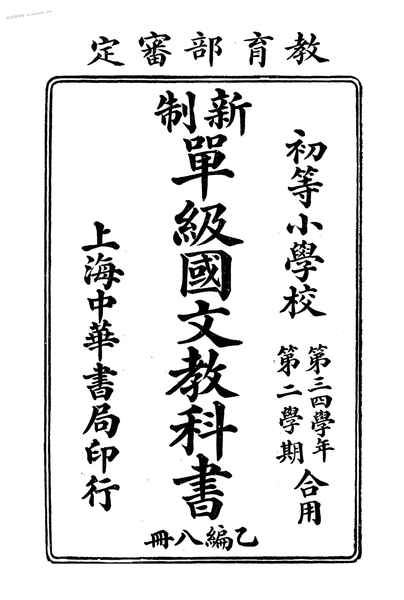 教育部審定
初等小學校
第三四學年
第二學期
合用
新制
單級國文教科書
乙編八冊
上海中華書局印行